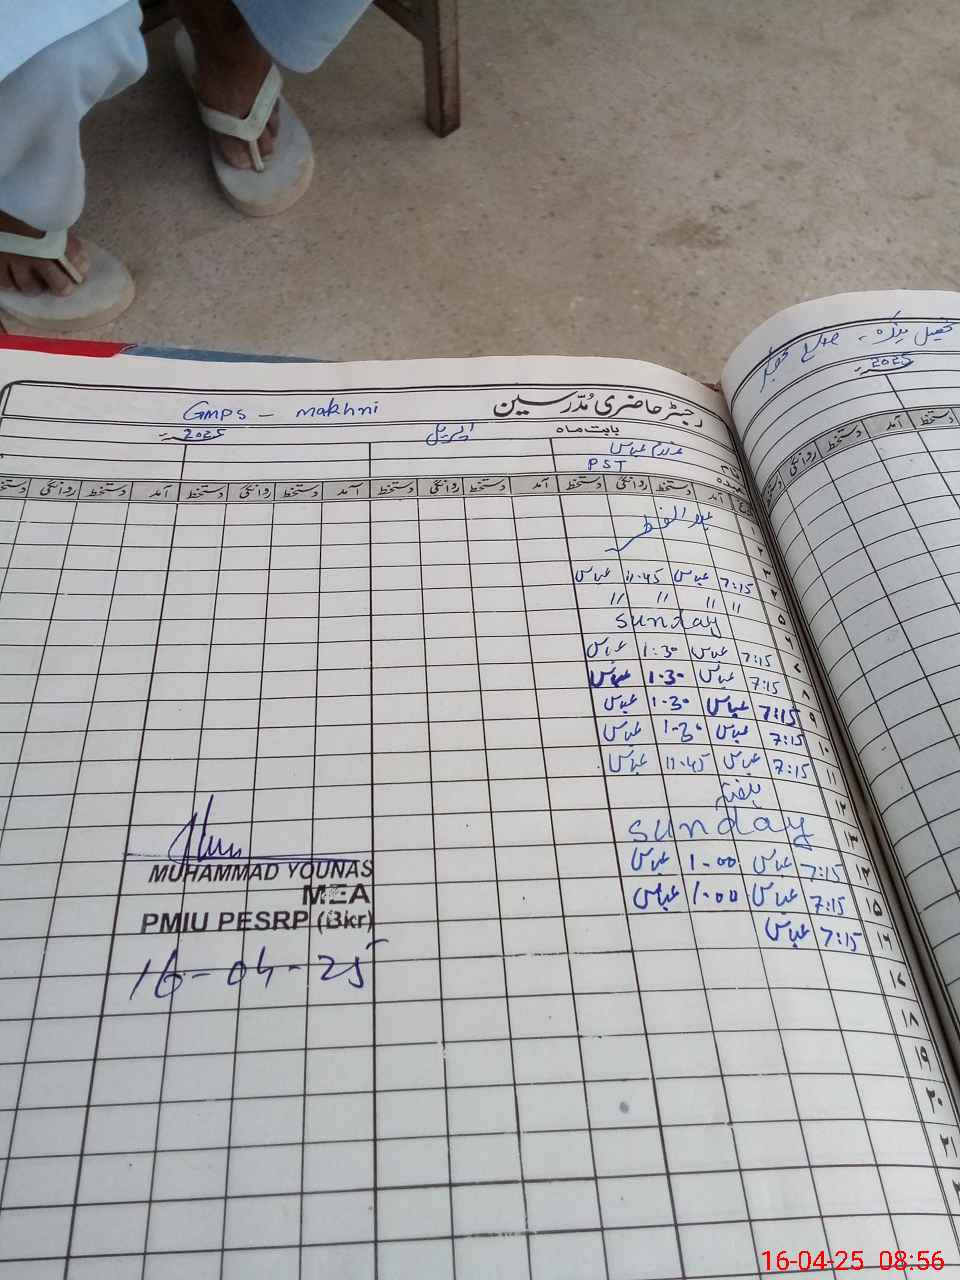 GMPS - makhni رجسٹر حاضری مُدّرسین
بابت ماہ اپریل 2025
عباس
PST
آمد دستخط روانگی دستخط آمد دستخط روانگی دستخط آمد دستخط روانگی دستخط آمد دستخط روانگی
۱ عید الفطر
۲
۳ 7:15 عباس 11.45 عباس
۴ " " " "
۵ sunday
۶
۷ 7:15 عباس 1:30 عباس
۸ 7:15 عباس 1.30 عباس
۹ 7:15 عباس 1.30 عباس
۱۰ 7:15 عباس 1.30 عباس
۱۱ 7:15 عباس 11.45 عباس
۱۲ ہفتہ
۱۳ sunday
۱۴ 7:15 عباس 1.00 عباس
۱۵ 7:15 عباس 1.00 عباس
۱۶ 7:15 عباس
۱۷
۱۸
۱۹
۲۰
۲۱
MUHAMMAD YOUNAS
MEA
PMIU PESRP (Bkr)
16-04-25
تحصیل ضلع بھکر
2025
آمد دستخط روانگی دستخط
16-04-25 08:56